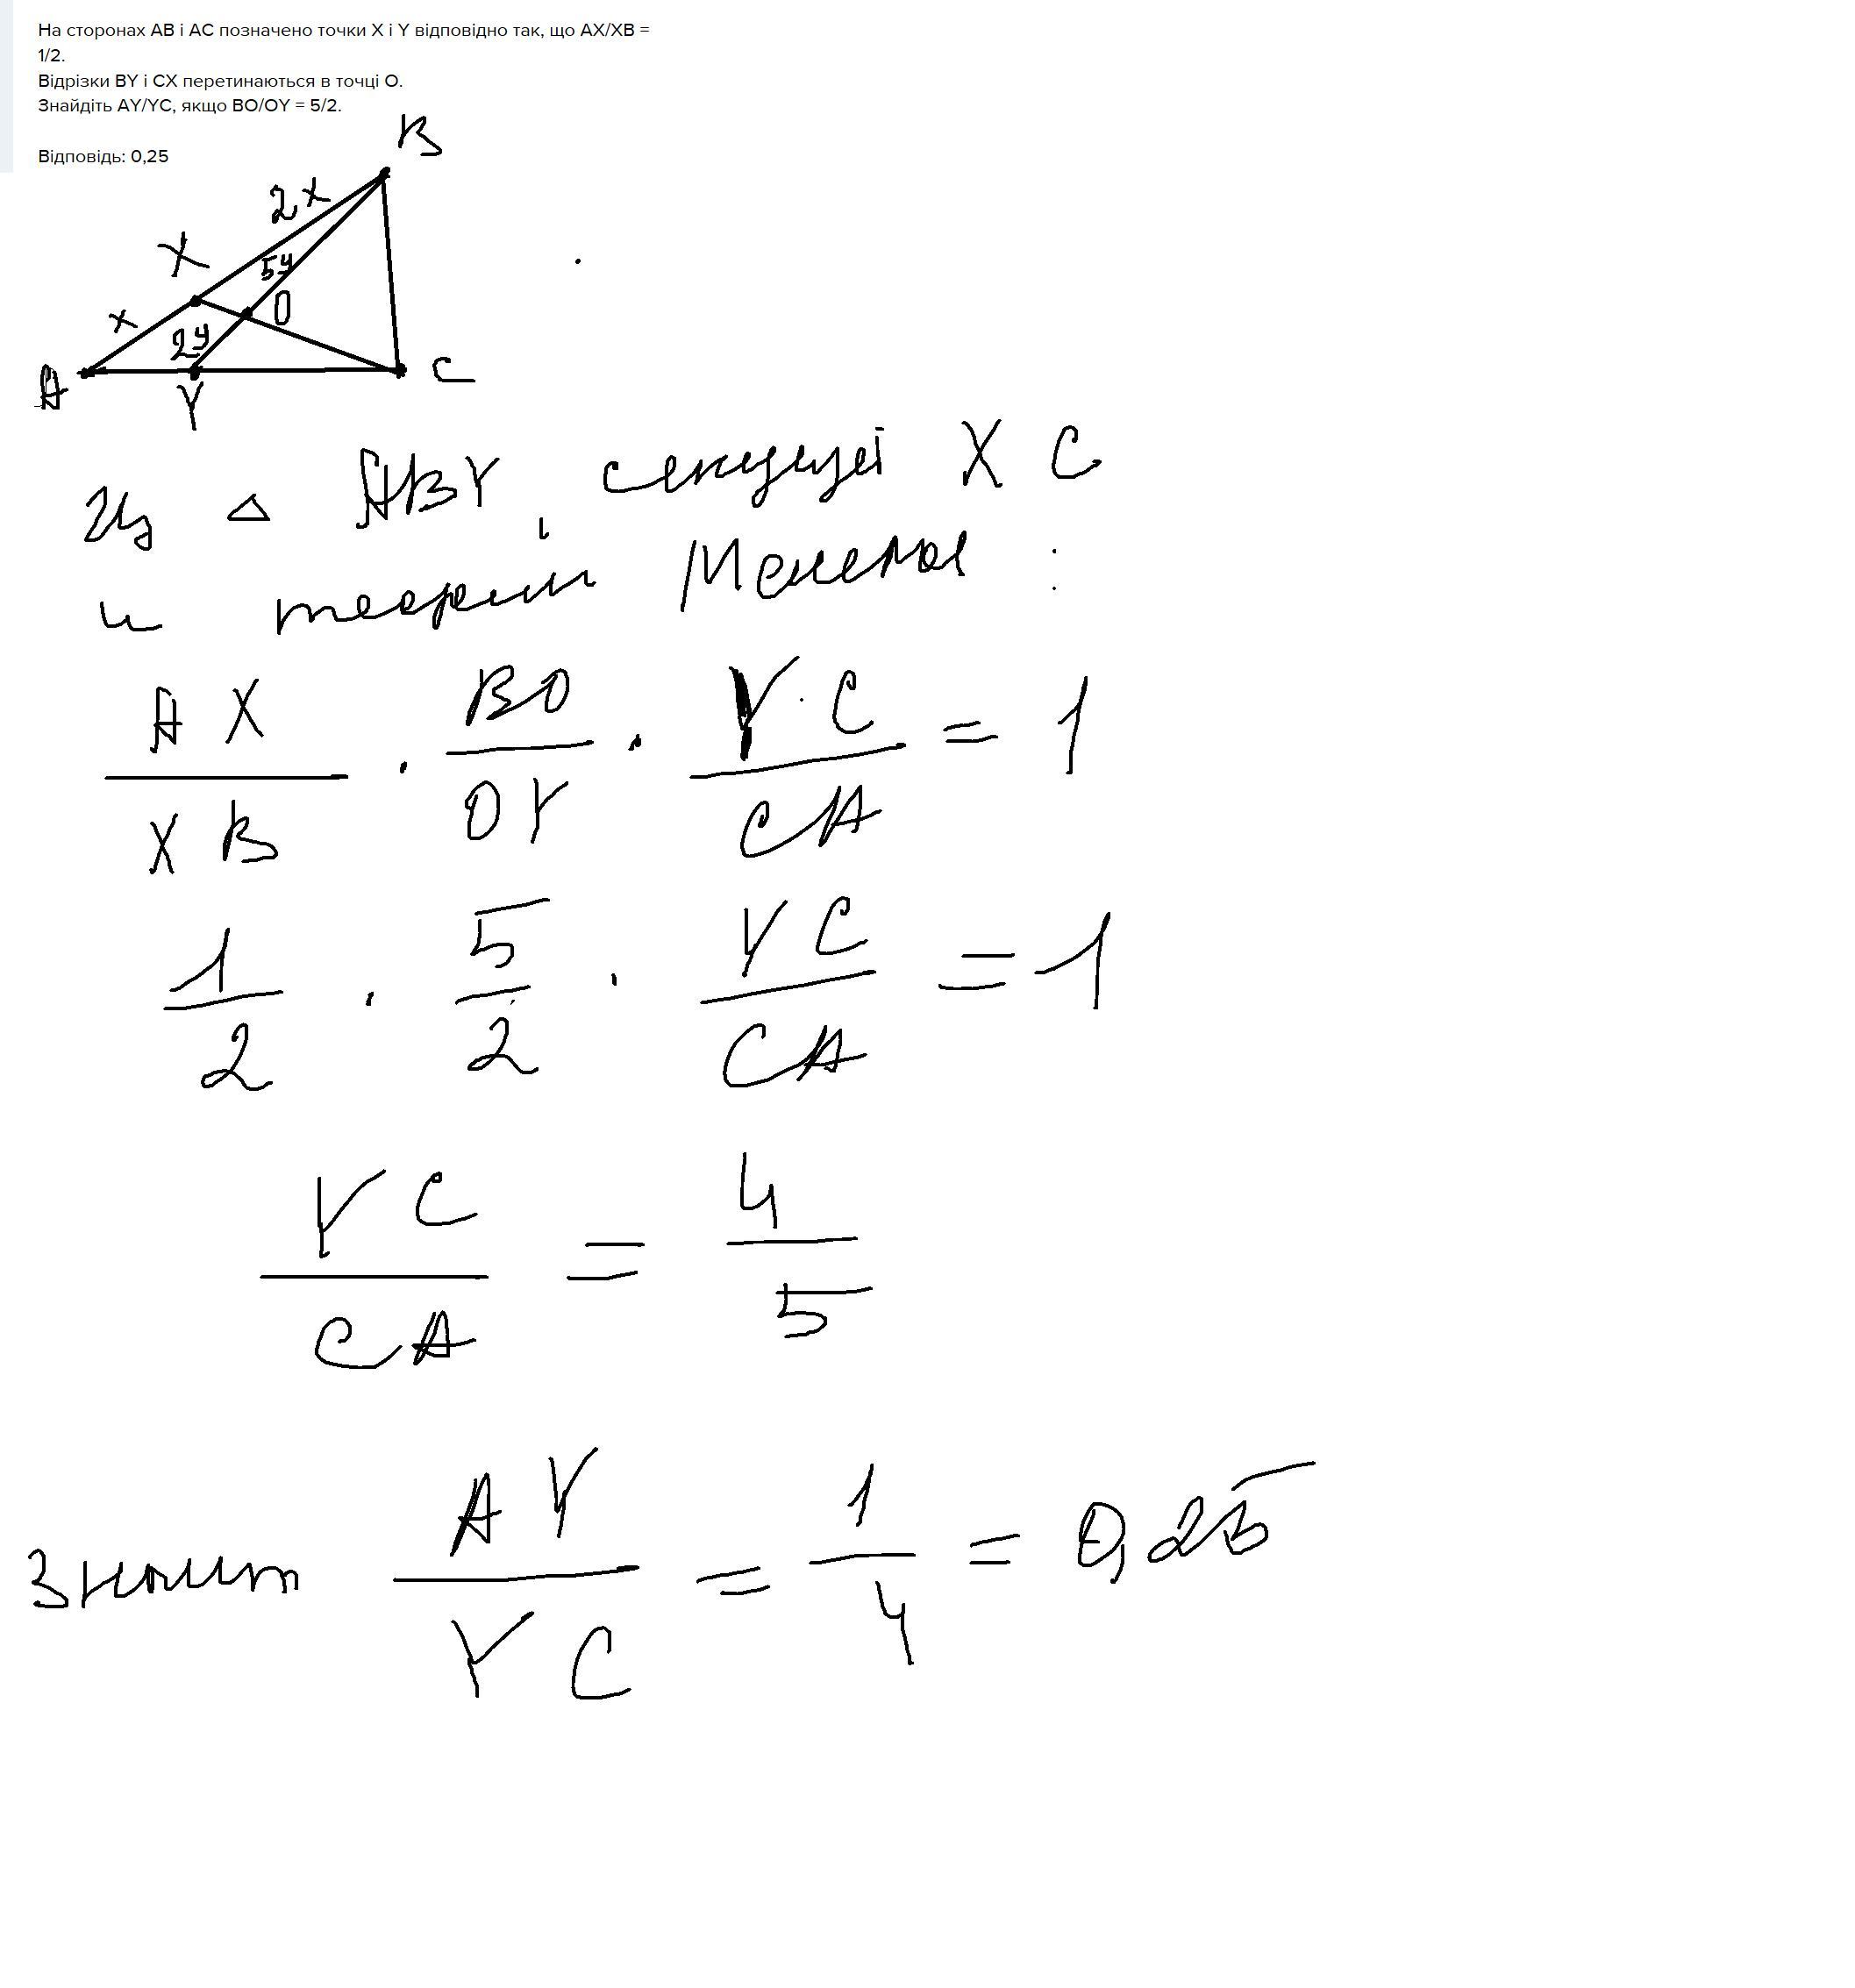 На сторонах AB і AC позначено точки X і Y відповідно так, що AX/XB =
1/2.
Відрізки BY і CX перетинаються в точці O.
Знайдіть AY/YC, якщо BO/OY = 5/2.
Відповідь: 0,25
B
2x
X
5y
O
x
2y
A
C
Y
Из △ ABY, секущей XC
и теоремы Менелая :
AX/XB · BO/OY · YC/CA = 1
1/2 · 5/2 · YC/CA = 1
YC/CA = 4/5
Значит AY/YC = 1/4 = 0,25